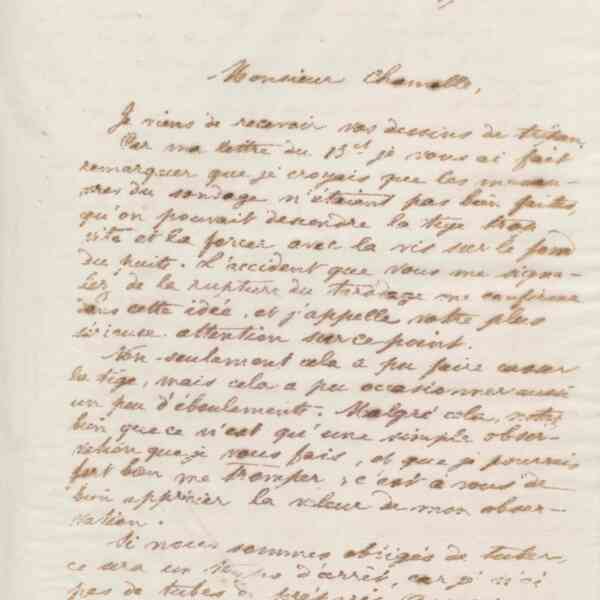 Monsieur Chamelle,
Je viens de recevoir vos dessins de trépan.
Par ma lettre du 13 ct je vous ai fait
remarquer que je croyais que les manœu-
vres du sondage n'étaient pas bien faites,
qu'on pouvait descendre la tige trop
vite et la forcer avec la vis sur le fond
du puits. L'accident que vous me signa-
lez, de la rupture du taraudage me confirme
dans cette idée, et j'appelle votre plus
sérieuse attention sur ce point.
Non-seulement cela a pu faire casser
la tige, mais cela a pu occasionner aussi
un peu d'éboulements. Malgré cela, notez
bien que ce n'est qu'une simple obser-
vation que je vous fais, et que je pourrais
fort bien me tromper, c'est à vous de
bien apprécier la valeur de mon obser-
vation.
Si nous sommes obligés de tuber,
ce sera un temps d'arrêt, car je n'ai
pas de tubes de préparés